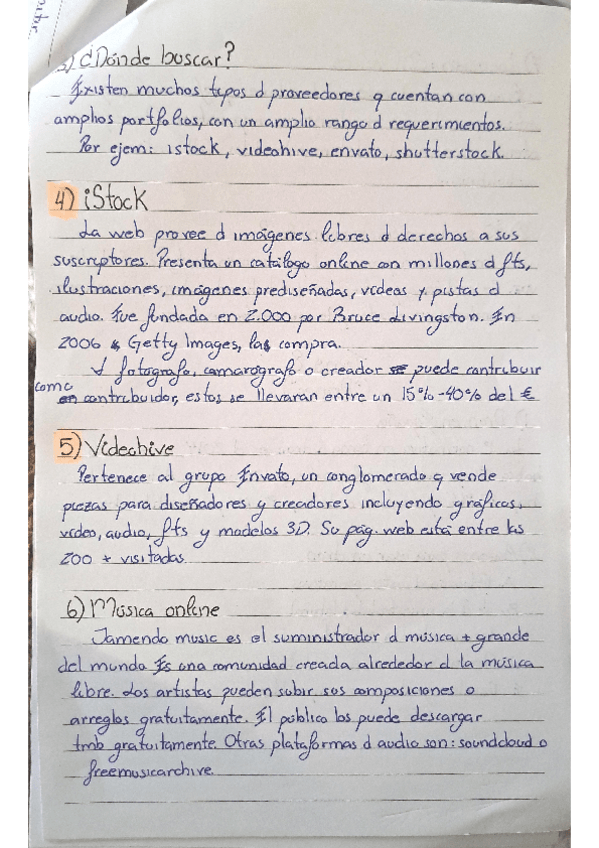 3) ¿Dónde buscar?
Existen muchos tipos d proveedores q cuentan con
amplios portfolios, con un amplio rango d requerimientos.
Por ejem: istock, videohive, envato, shutterstock.
4) iStock
La web provee d imágenes libres d derechos a sus
suscriptores. Presenta un catálogo online con millones d fts,
ilustraciones, imágenes prediseñadas, vídeos y pistas d
audio. Fue fundada en 2.000 por Bruce Livingston. En
2006 Getty Images, las compra.
fotografo, camarógrafo o creador se puede contribuir
como
en contribuidor, estos se llevaran entre un 15%-40% del €
5) Videohive
Pertenece al grupo Envato, un conglomerado q vende
piezas para diseñadores y creadores incluyendo gráficos,
vídeo, audio, fts y modelos 3D. Su pág. web está entre las
200 + visitadas.
6) Música online
Jamendo music es el suministrador d música + grande
del mundo. Es una comunidad creada alrededor d la música
libre. Los artistas pueden subir sus composiciones o
arreglos gratuitamente. El público los puede descargar
tmb gratuitamente. Otras plataformas d audio son: soundcloud o
freemusicarchive.